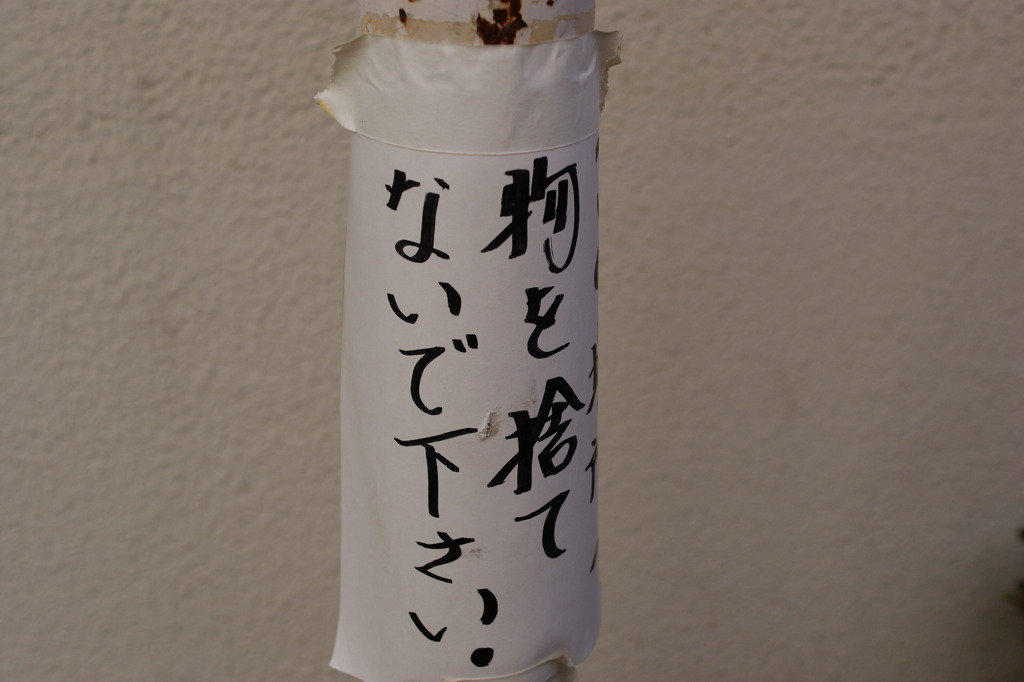 物を捨て
ないで下さい.